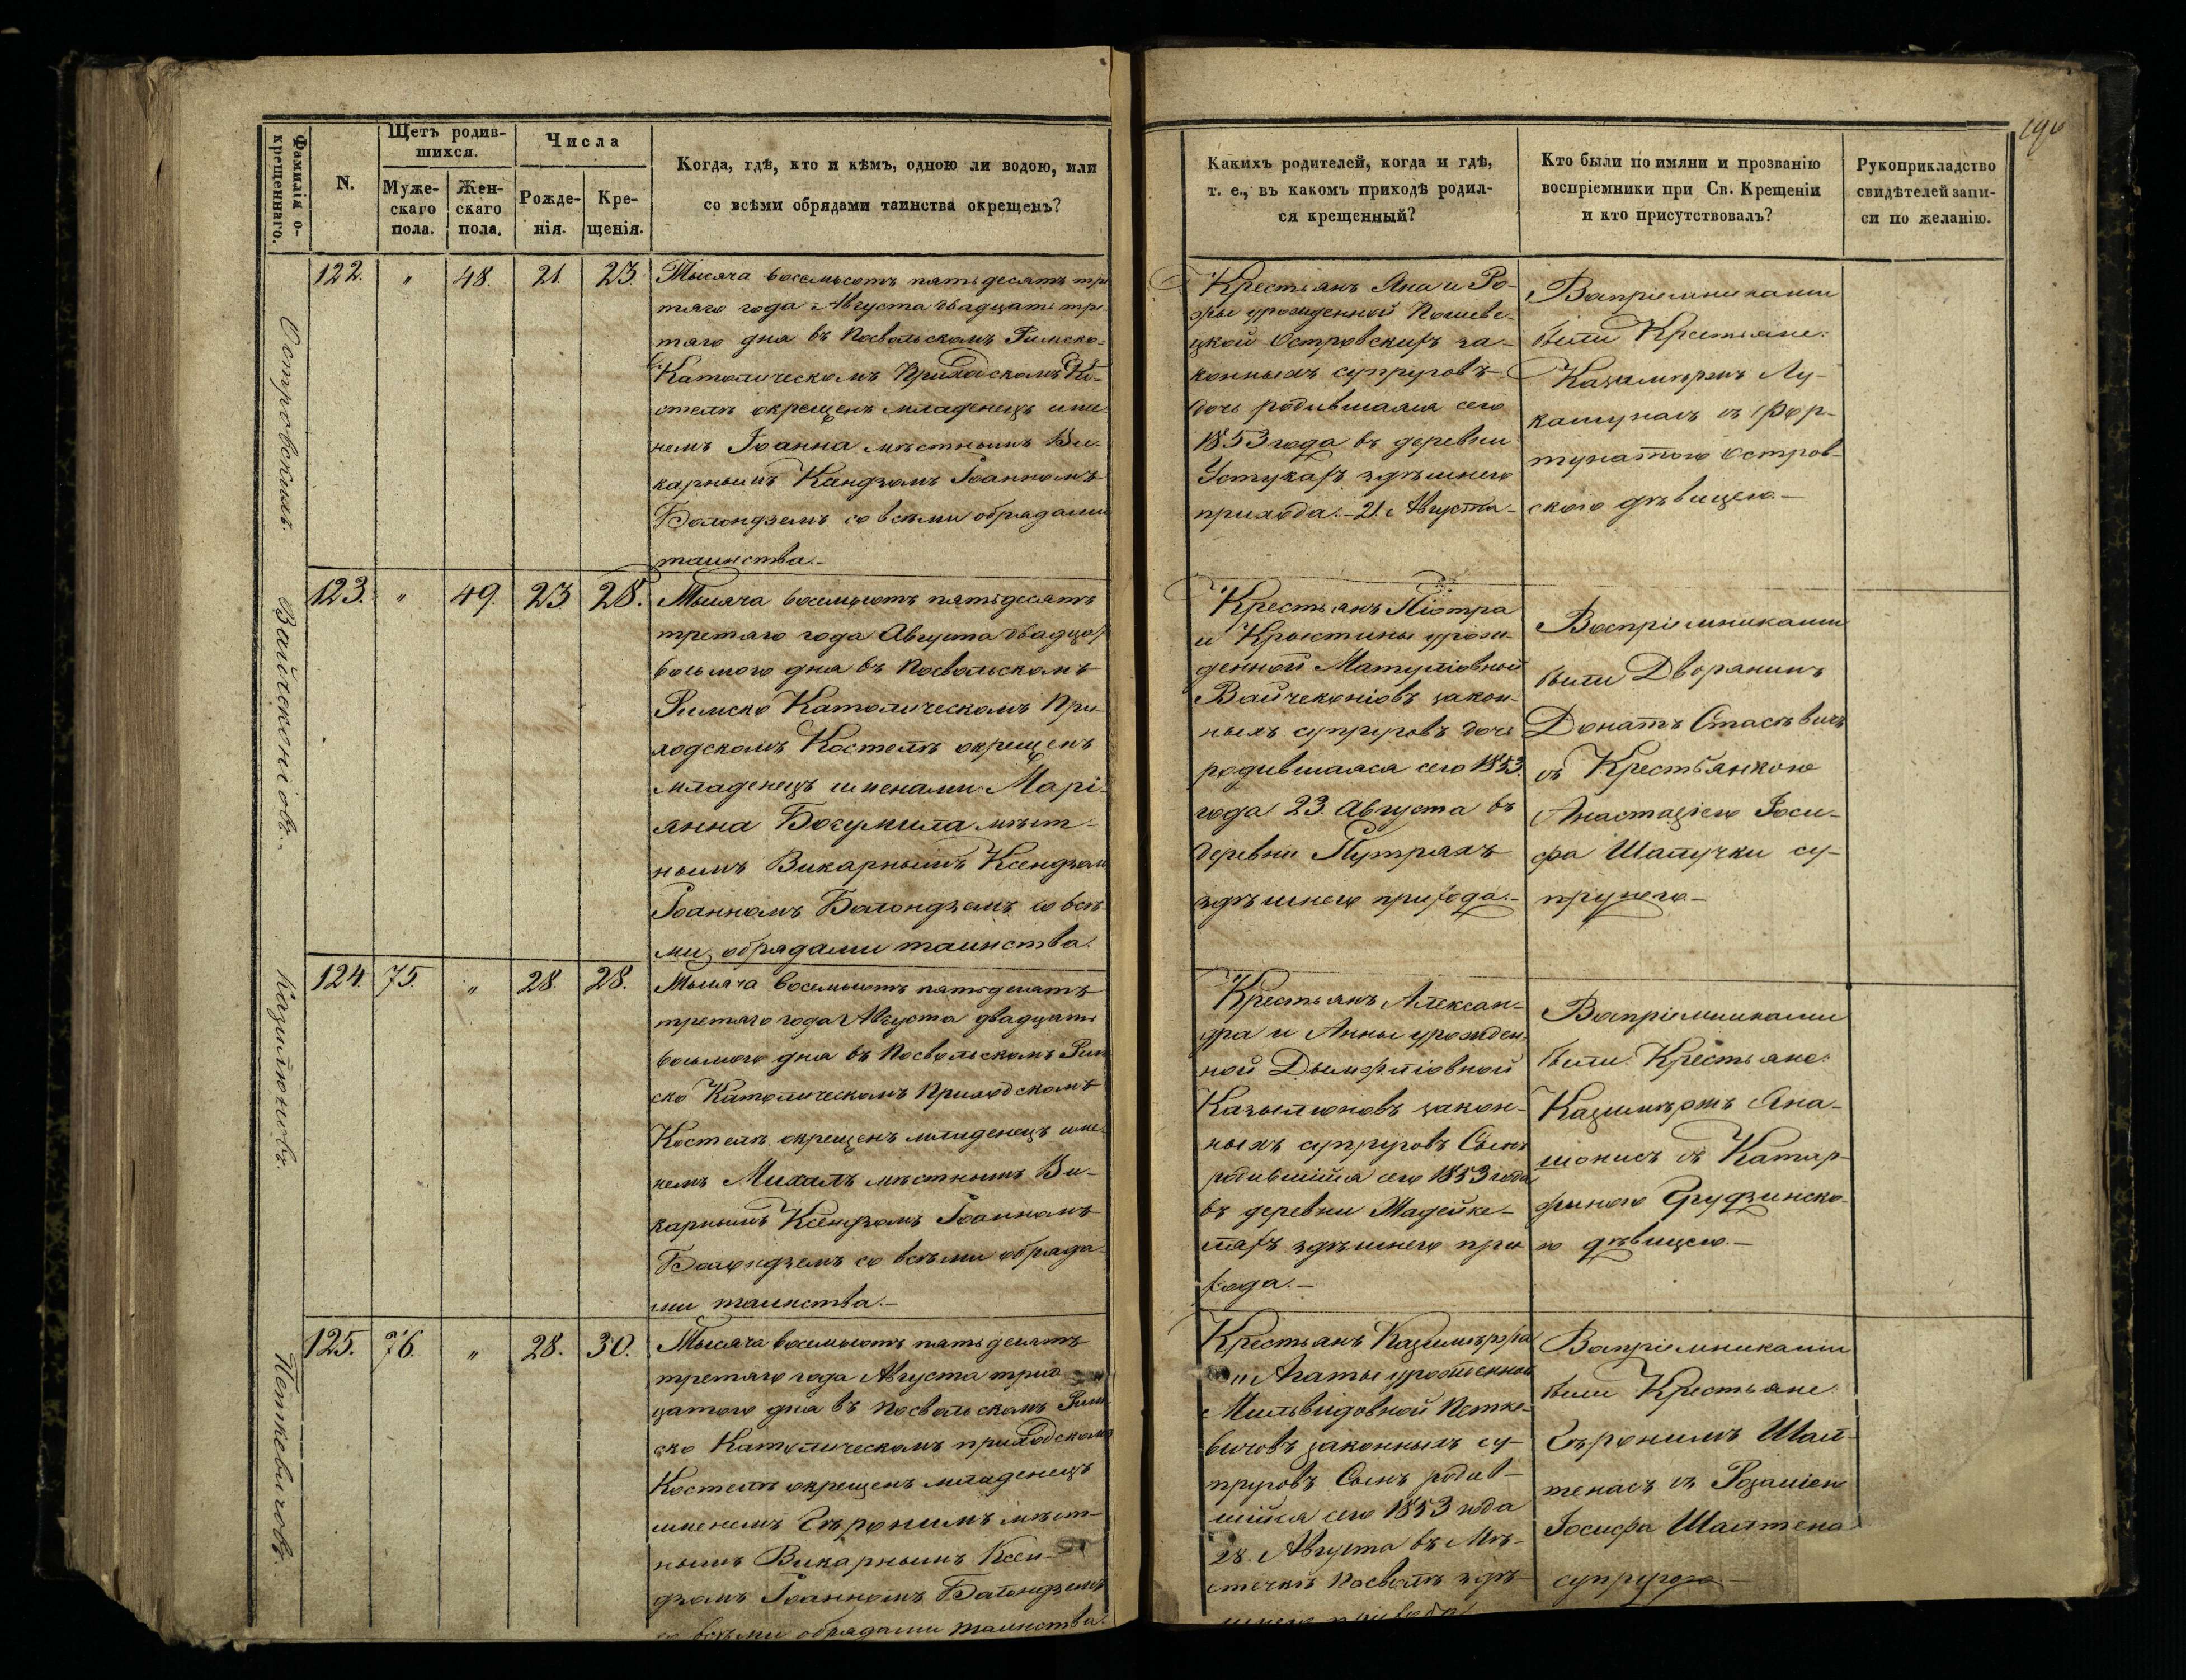 Фамилія о-
крещеннаго.
N.
Щетъ родив-
шихся.
Муже-
скаго
пола.
Жен-
скаго
пола.
Числа
Рожде-
нія.
Кре-
щенія.
Когда, гдѣ, кто и кѣмъ, одною ли водою, или
со всѣми обрядами таинства окрещенъ?
Каких родителей, когда и гдѣ,
т. е., въ какомъ приходѣ родил-
ся крещенный?
Кто были по имяни и прозванію
воспріемники при Св. Крещеніи
и кто присутствовалъ?
Рукоприкладство
свидѣтелей запи-
си по желанію.
Островскихъ.
122. " 48. 21. 23.
Тысяча восемьсотъ пятьдесятъ тре
тяго года Августа двадцать тре-
тяго дня въ Посвольскомъ Римско-
Католическомъ Приходскомъ Ко-
стелѣ окрещенъ младенецъ име
немъ Іоанна мѣстнымъ Ви-
карнымъ Ксендзомъ Іоанномъ
Болондземъ со всѣми обрядами
таинства.-
Крестьянъ Яна и Ро-
жы урожденной
Островскихъ за-
конныхъ супруговъ
дочь родившаяся сего
1853 года въ деревни
Устукахъ здѣшнего
прихода.- 21. Августа.-
Воспріемниками
были Крестьяне:
Казимѣржъ Лу-
кашунасъ съ Фор-
тунатою Остров-
скою дѣвицею.-
Вайчеконіовъ.
123. " 49. 23. 28.
Тысяча восемьсотъ пятьдесятъ
третяго года Августа двадцать
восьмого дня въ Посвольскомъ
Римско Католическомъ При-
ходскомъ Костелѣ окрещенъ
младенецъ именами Марі-
янна Богумила мѣст-
нымъ Викарнымъ Ксендзомъ
Іоанномъ Болондземъ со всѣ-
ми обрядами таинства.
Крестьянъ Піотра
и Крыстины урож-
денной Матуліовной
Вайчеконіовъ закон-
ныхъ супруговъ дочь
родившаяся сего 1853.
года 23. Августа въ
деревни Путряхъ
здѣшнего прихода.-
Воспріемниками
были Дворянинъ
Донатъ Стасѣвичъ
съ Крестьянкою
Анастазіею Іоси-
фа Шапучки су-
пругою.-
Казилюновъ.
124. 75. " 28. 28.
Тысяча восемьсотъ пятьдесятъ
третяго года Августа двадцать
восьмого дня въ Посвольскомъ Рим
ско Католическомъ Приходскомъ
Костелѣ окрещенъ младенецъ име-
немъ Михалъ мѣстнымъ Ви-
карнымъ Ксендзомъ Іоанномъ
Болондземъ со всѣми обряда-
ми таинства.-
Крестьянъ Алексан-
дра и Анны урожден
ной
Казылюновъ закон-
ныхъ супруговъ Сынъ
родившійся сего 1853 года
въ деревни Мадейке-
ляхъ здѣшнего при
хода.-
Воспріемниками
были: Крестьяне:
Казимѣржъ Яна-
шонисъ съ Катар-
жиною Грудзинско-
ю дѣвицею.-
Петкевичовъ.
125. 76. " 28. 30.
Тысяча восемьсотъ пятьдесятъ
третяго года Августа трид
цатого дня въ Посвольскомъ Рим-
ско Католическомъ приходскомъ
Костелѣ окрещенъ младенецъ
именемъ Гѣронимъ мѣст-
нымъ Викарнымъ Ксен-
дзомъ Іоанномъ Болондземъ
со всѣми обрядами таинства.
Крестьянъ Казимѣржа
и Агаты урожденной
Мильвидовной Петке-
вичовъ законныхъ су-
пруговъ Сынъ родив-
шійся сего 1853 года
28. Августа въ Мѣ-
стечкѣ Посволѣ здѣ-
шнего прихода
Воспріемниками
были Крестьяне
Гѣронимъ Шал-
тенасъ съ Розаліею
Іосифа Шалтена
супругою